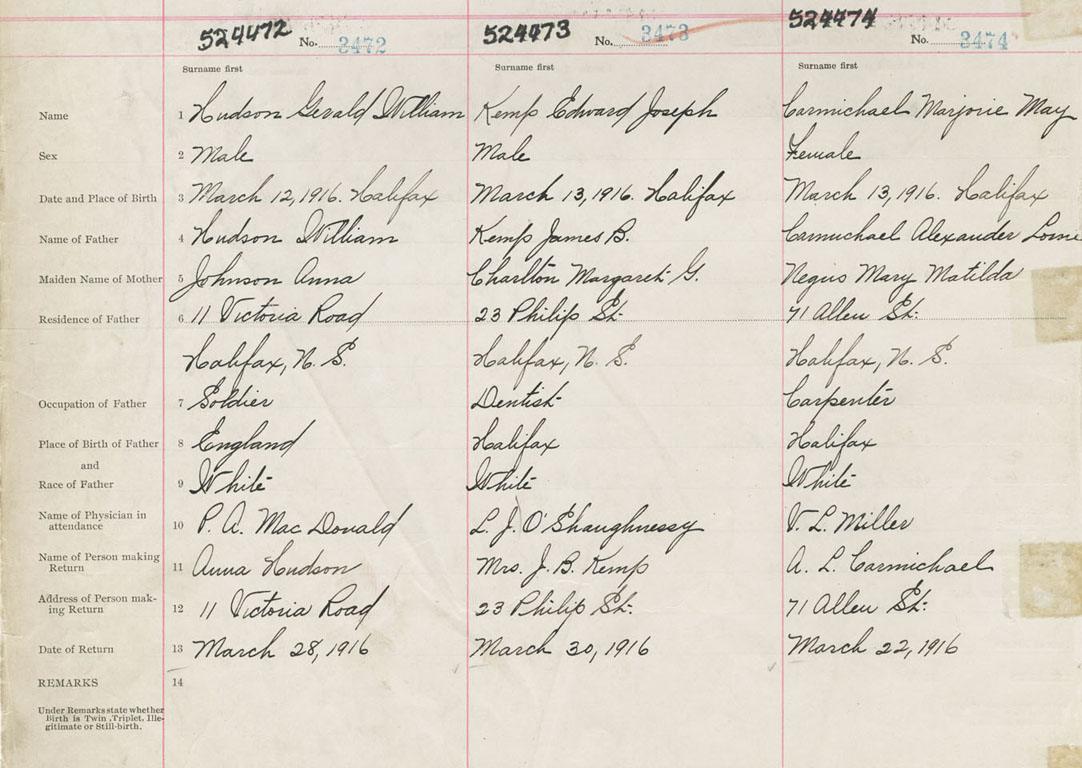 524472 No. 3472 524473 No. 3473 524474 No. 3474
Surname first Surname first Surname first
Name 1 Hudson Gerald William Kemp Edward Joseph Carmichael Marjorie May
Sex 2 Male Male Female
Date and Place of Birth 3 March 12, 1916. Halifax March 13, 1916. Halifax March 13, 1916. Halifax
Name of Father 4 Hudson William Kemp James B. Carmichael Alexander Lorne
Maiden Name of Mother 5 Johnson Anna Charlton Margaret G. Negus Mary Matilda
Residence of Father 6 11 Victoria Road 23 Philip St. 71 Allen St.
Halifax, N. S. Halifax, N. S. Halifax, N. S.
Occupation of Father 7 Soldier Dentist Carpenter
Place of Birth of Father 8 England Halifax Halifax
and
Race of Father 9 White White White
Name of Physician in
attendance 10 P. A. Mac Donald L. J. O'Shaughnessy V. L. Miller
Name of Person making
Return 11 Anna Hudson Mrs. J. B. Kemp A. L. Carmichael
Address of Person mak-
ing Return 12 11 Victoria Road 23 Philip St. 71 Allen St.
Date of Return 13 March 28, 1916 March 30, 1916 March 22, 1916
REMARKS 14
Under Remarks state whether
Birth is Twin, Triplet, Ille-
gitimate or Still-birth.